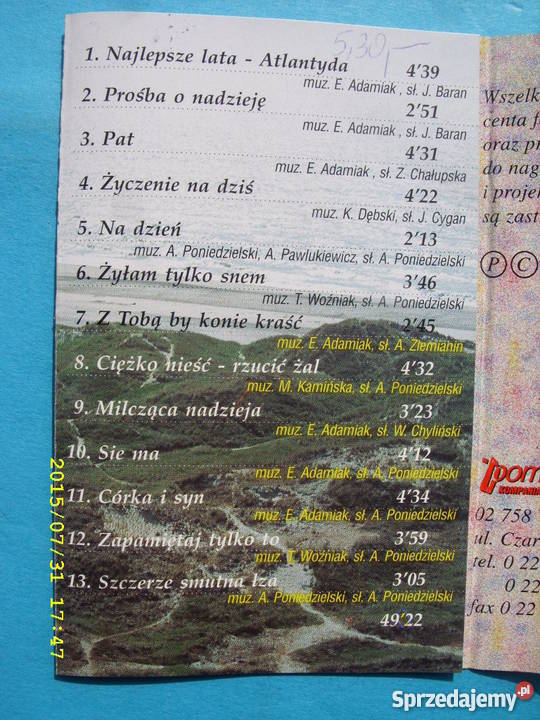 5,30,-
1. Najlepsze lata - Atlantyda 4'39
muz. E. Adamiak, sł. J. Baran
2. Prośba o nadzieję 2'51
muz. E. Adamiak, sł. J. Baran
3. Pat 4'31
muz. E. Adamiak, sł. Z. Chałupska
4. Życzenie na dziś 4'22
muz. K. Dębski, sł. J. Cygan
5. Na dzień 2'13
muz. A. Poniedzielski, A. Pawlukiewicz, sł. A. Poniedzielski
6. Żyłam tylko snem 3'46
muz. T. Woźniak, sł. A. Poniedzielski
7. Z Tobą by konie kraść 2'45
muz. E. Adamiak, sł. A. Ziemianin
8. Ciężko nieść - rzucić żal 4'32
muz. M. Kamińska, sł. A. Poniedzielski
9. Milcząca nadzieja 3'23
muz. E. Adamiak, sł. W. Chyliński
10. Sie ma 4'12
muz. E. Adamiak, sł. A. Poniedzielski
11. Córka i syn 4'34
muz. E. Adamiak, sł. A. Poniedzielski
12. Zapamiętaj tylko to 3'59
muz. T. Woźniak, sł. A. Poniedzielski
13. Szczerze smutna łza 3'05
muz. A. Poniedzielski, sł. A. Poniedzielski
49'22
Wszelk
centa f
oraz pr
do nag
i projek
są zast
Ⓟ Ⓒ
pom
KOMPANIA
02 758
ul. Czar
tel. 0 22
0 22
fax 0 22
2015/07/31 17:47
Sprzedajemy.pl